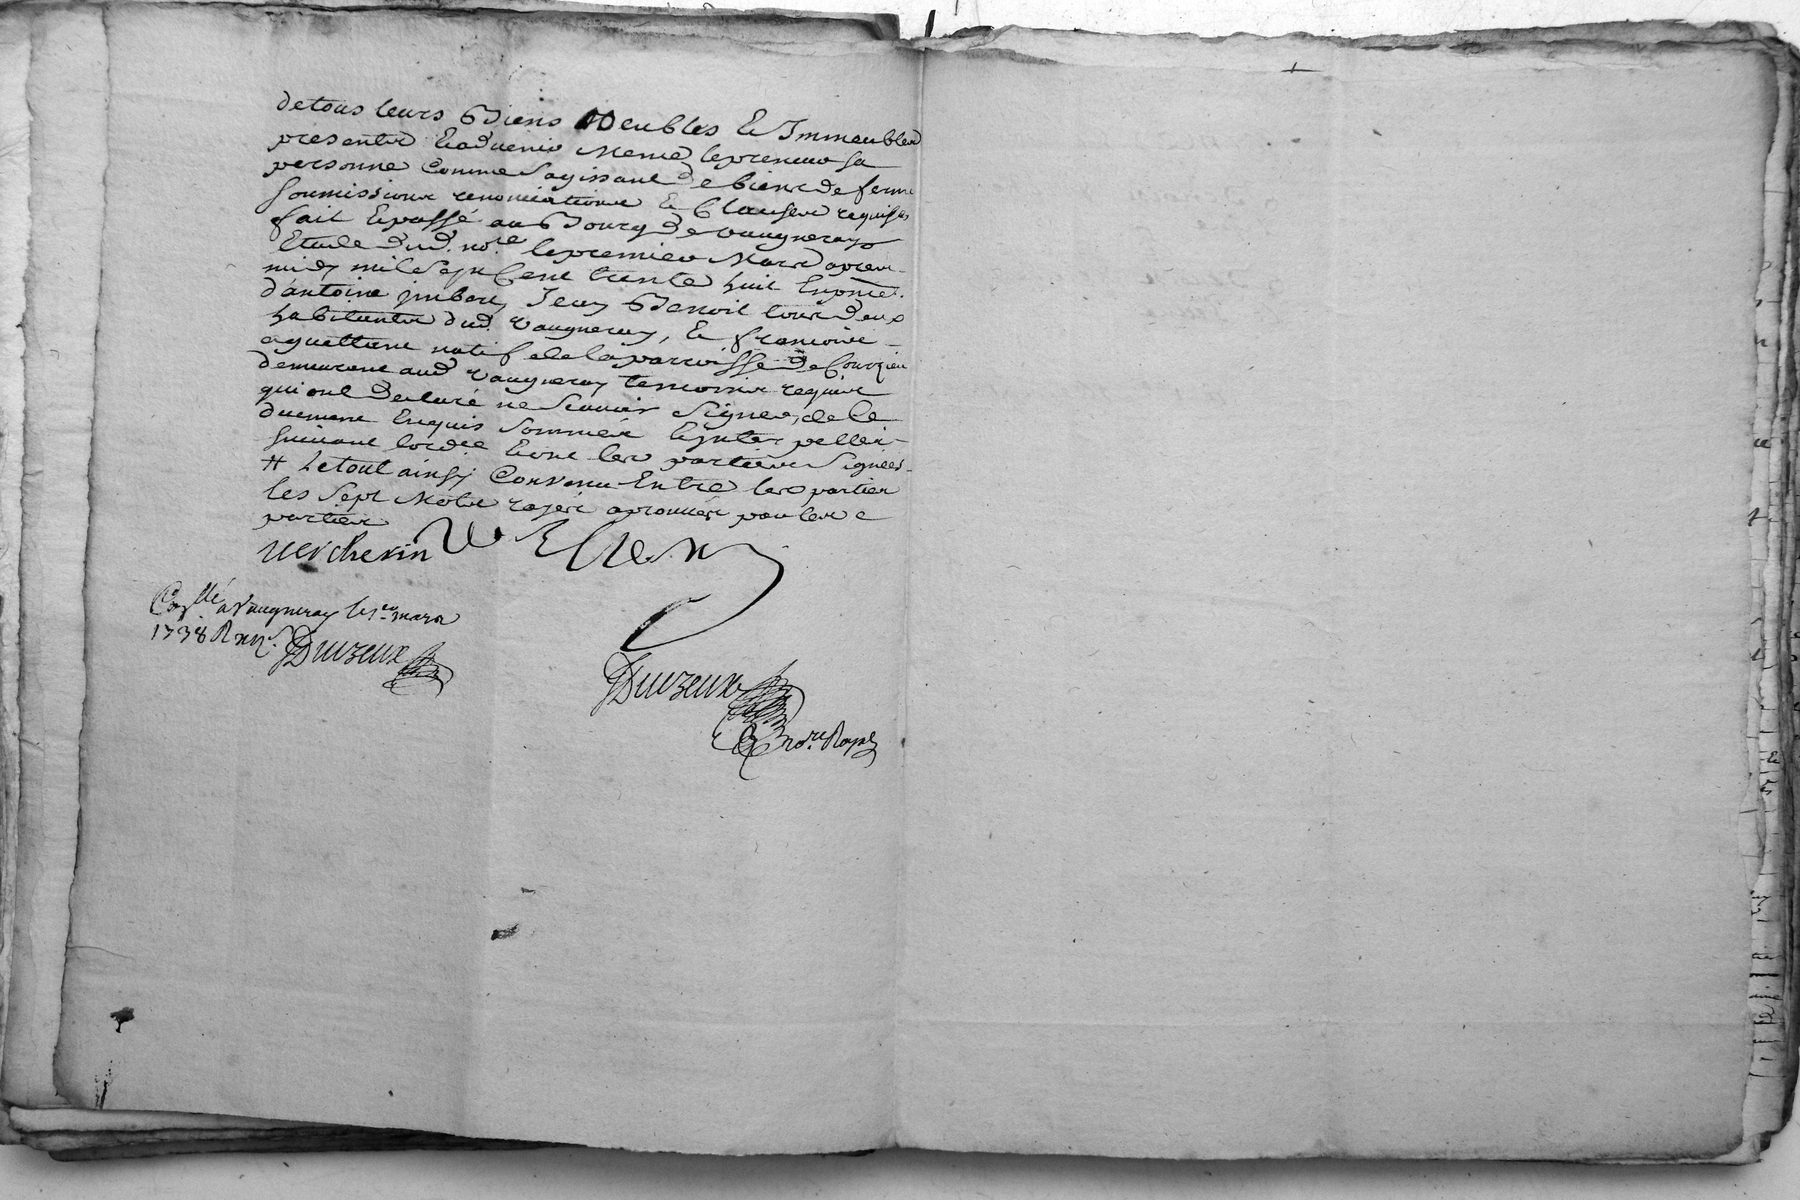 de tous leurs Biens Meubles & Immeubles
presents & advenir meme le preneur sa
personne comme sagissant de biens de ferme
soumissions renonciations & Clauses requises
fait & passé au Bourg de vaugneray
Etude dud. no.re le premier Mars apres
midy mil Sept Cent trente huit En pñce
d'antoine jmbert, Jean Benoit tous deux
habitants dud. Vaugneray, & francois
aguettant natif de la parroisse de Courzieu
demeurant aud Vaugneray temoins requis
qui ont Declaré ne Scavoir Signer, de ce
duement Enquis Sommés & jnterpellés
suivant lord.ce & ont les parties Signées
# Le tout ainsy Convenu Entre les parties
les Sept Mots rajers aprouvés par les
parties
verchexin
Con.llé a Vaugneray le 1.er mars
1738 R
Duvzeux
Duvzeux
no.re Royal